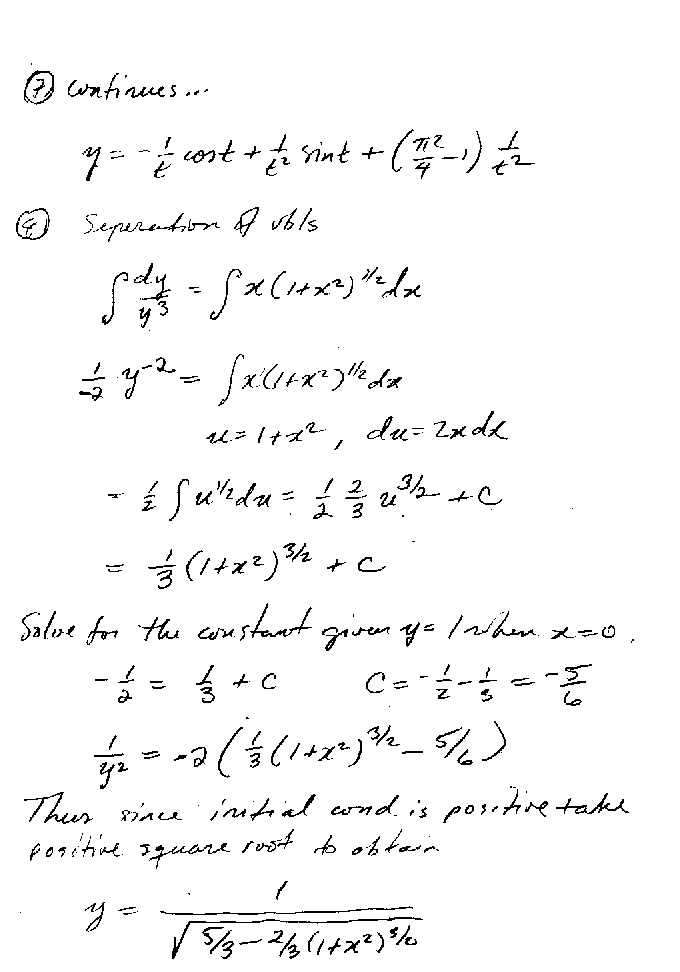 ⑦ continues...
y = -1/t cost + 1/t² sint + (π²/4 - 1) 1/t²
④ Seperation of vbls
∫ dy/y³ = ∫ x(1+x²)^{1/2} dx
1/-2 y^{-2} = ∫ x(1+x²)^{1/2} dx
u = 1+x², du = 2xdx
= 1/2 ∫ u^{1/2} du = 1/2 2/3 u^{3/2} + C
= 1/3 (1+x²)^{3/2} + C
Solve for the constant given y = 1 when x = 0.
-1/2 = 1/3 + C C = -1/2 - 1/3 = -5/6
1/y² = -2(1/3 (1+x²)^{3/2} - 5/6)
Thus since initial cond. is positive take
positive square root to obtain
y = 1/√(5/3 - 2/3 (1+x²)^{3/2})